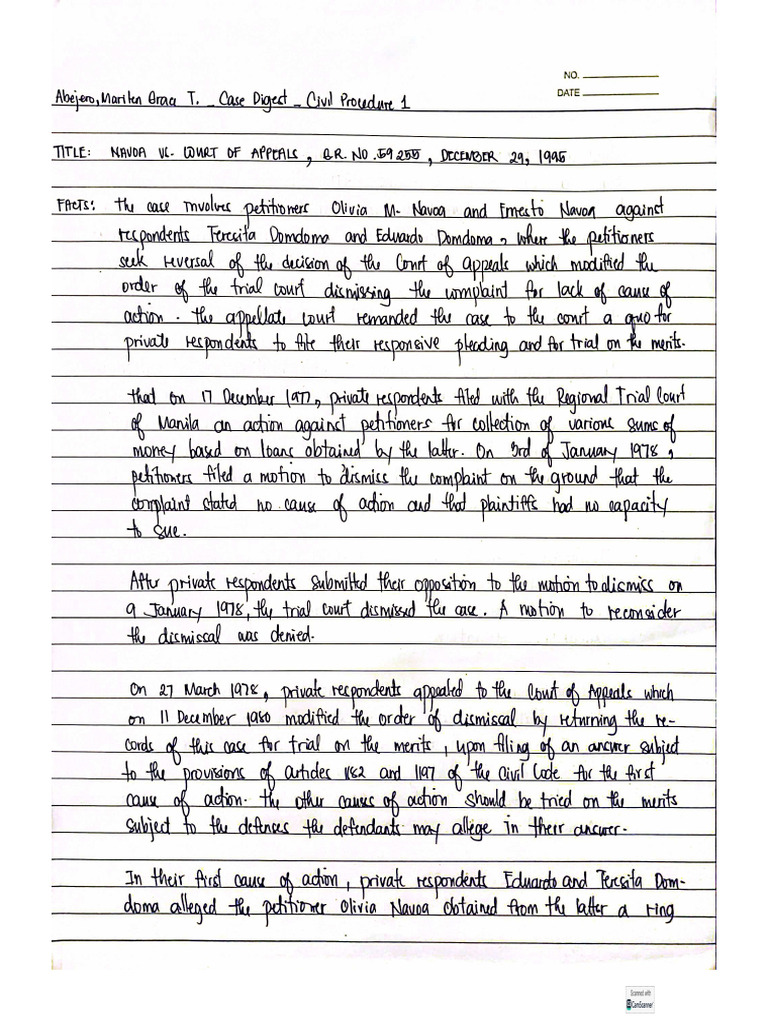 NO.
DATE
Abejero, Marilen Grace T. _ Case Digest _ Civil Procedure 1
TITLE: NAVOA VS. COURT OF APPEALS, G.R. NO. 59255, DECEMBER 29, 1995
FACTS: The case involves petitioners Olivia M. Navoa and Ernesto Navoa against
respondents Teresita Domdoma and Eduardo Domdoma, where the petitioners
seek reversal of the decision of the Court of Appeals which modified the
order of the trial court dismissing the complaint for lack of cause of
action. The appellate court remanded the case to the court a quo for
private respondents to file their responsive pleading and for trial on the merits.
That on 17 December 1977, private respondents filed with the Regional Trial Court
of Manila an action against petitioners for collection of various sums of
money based on loans obtained by the latter. On 3rd of January 1978,
petitioners filed a motion to dismiss the complaint on the ground that the
complaint stated no cause of action and that plaintiffs had no capacity
to sue.
After private respondents submitted their opposition to the motion to dismiss on
9 January 1978, the trial court dismissed the case. A motion to reconsider
the dismissal was denied.
On 27 March 1978, private respondents appealed to the Court of Appeals which
on 11 December 1980 modified the order of dismissal by returning the re-
cords of this case for trial on the merits, upon filing of an answer subject
to the provisions of articles 1182 and 1197 of the Civil Code for the first
cause of action. The other causes of action should be tried on the merits
subject to the defenses the defendants may allege in their answer.
In their first cause of action, private respondents Eduardo and Teresita Dom-
doma alleged the petitioner Olivia Navoa obtained from the latter a ring
Scanned with
CamScanner